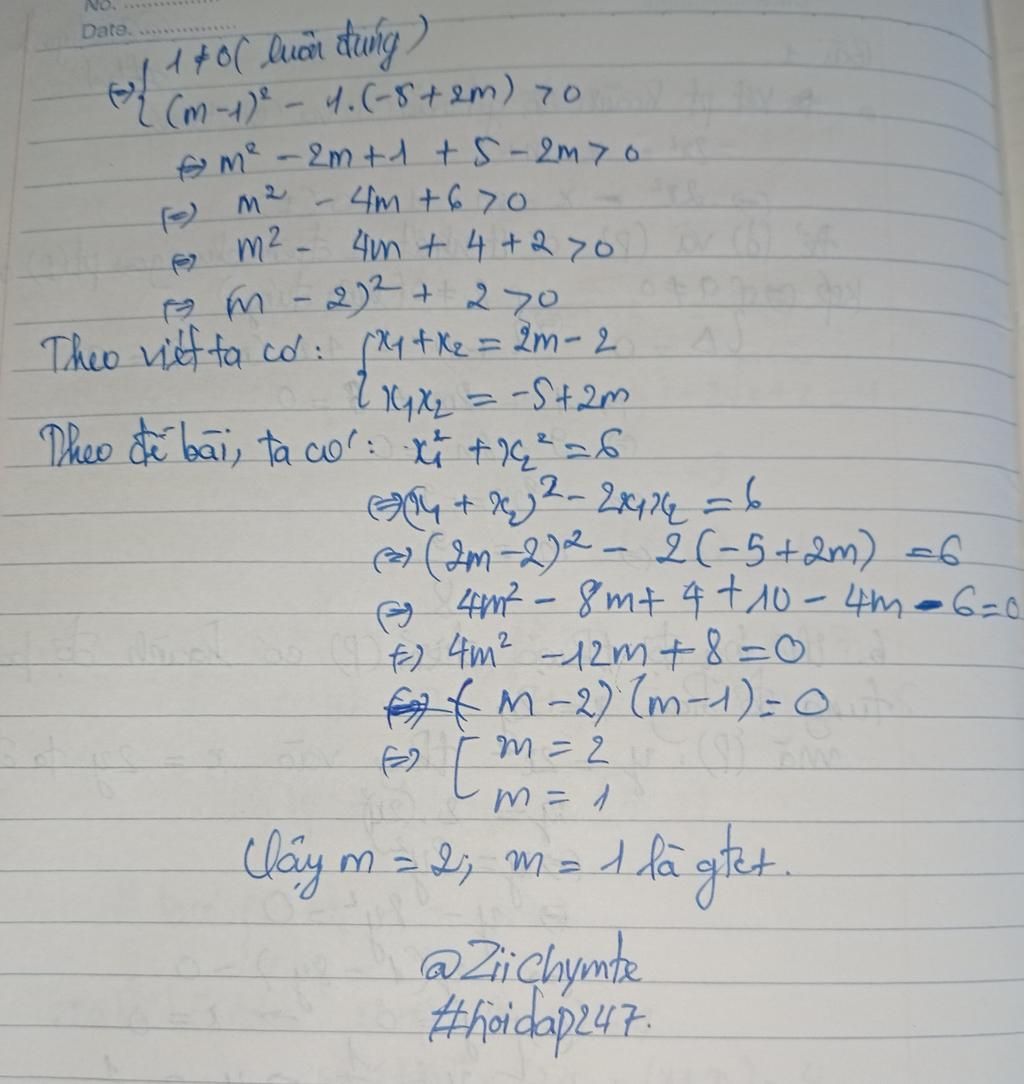 No. ..............
Date. ..............
⇔ { 1 ≠ 0 ( luôn đúng )
(m - 1)² - 1.(-5 + 2m) > 0
⇔ m² - 2m + 1 + 5 - 2m > 0
⇔ m² - 4m + 6 > 0
⇔ m² - 4m + 4 + 2 > 0
⇔ (m - 2)² + 2 > 0
Theo viét ta có : { x₁ + x₂ = 2m - 2
x₁x₂ = -5 + 2m
Theo đề bài, ta có : x₁² + x₂² = 6
⇔ (x₁ + x₂)² - 2x₁x₂ = 6
⇔ (2m - 2)² - 2(-5 + 2m) = 6
⇔ 4m² - 8m + 4 + 10 - 4m - 6 = 0
⇔ 4m² - 12m + 8 = 0
⇔ (m - 2)(m - 1) = 0
⇔ [ m = 2
m = 1
Vậy m = 2; m = 1 là gtct.
@Ziichymte
#hoidap247.